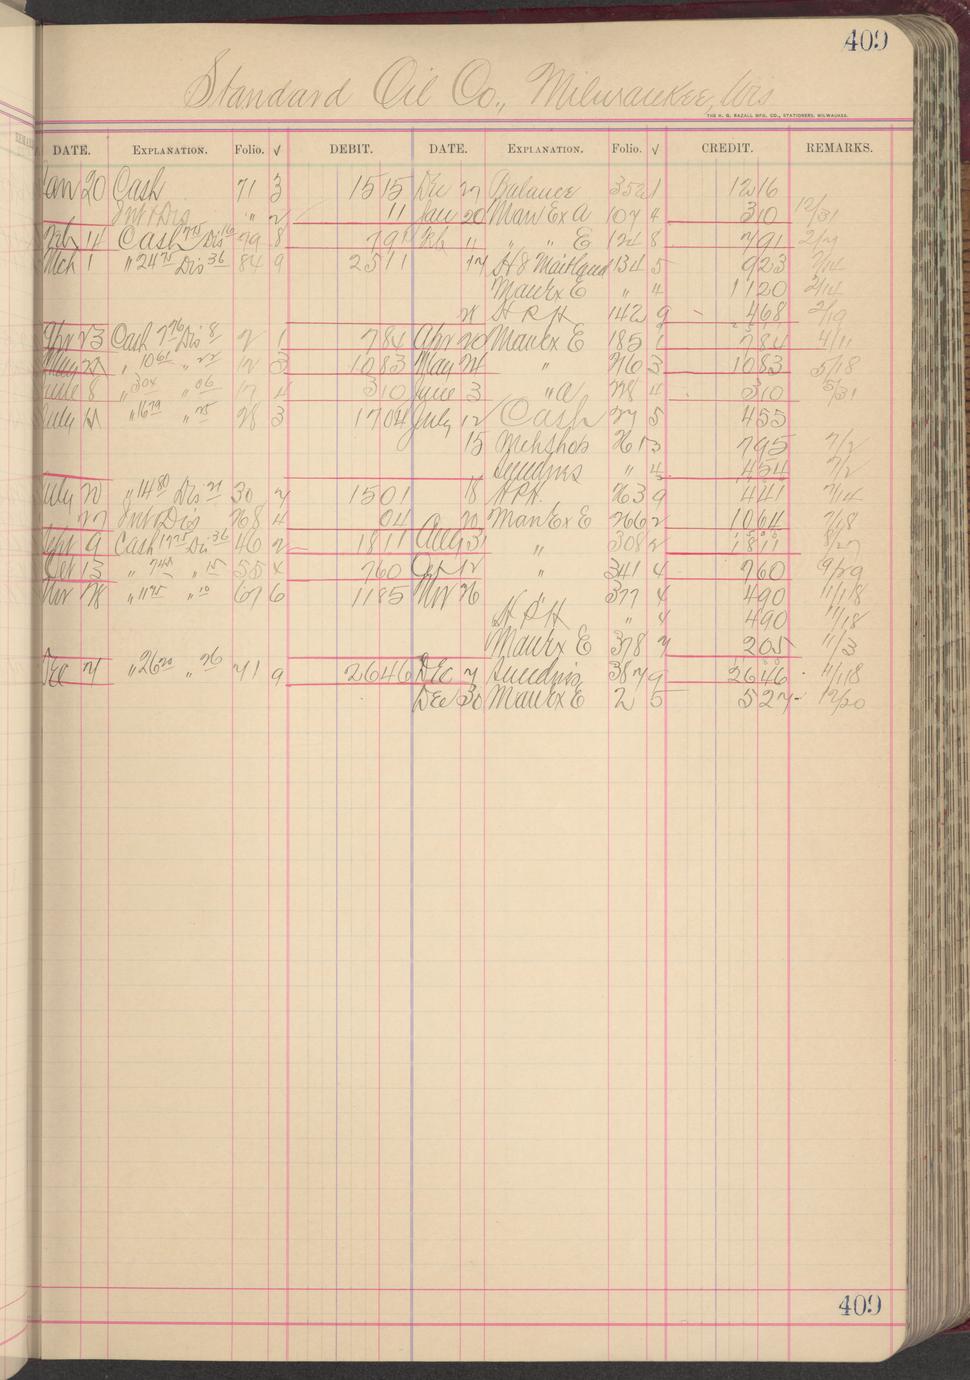 409
Standard Oil Co., Milwaukee, Wis
THE H. G. RAZALL MFG. CO., STATIONERS, MILWAUKEE.
DATE. EXPLANATION. Folio. √ DEBIT. DATE. EXPLANATION. Folio. √ CREDIT. REMARKS.
Jan 20 Cash 71 3 1515 Dec 27 Balance 352 1 1216
Int & Dis " 2 11 Jan 20 Man Ex A 107 4 310 12/31
Feb 14 Cash 775 Dis 16 79 8 791 Feb 11 " " E 124 8 791 2/7
Mch 1 " 2475 Dis 36 84 9 2511 14 H 8 Maitland 134 5 923 2/14
Man Ex E " 4 1120 2/14
28 H R H 142 9 468 2/19
Apr 23 Cash 776 Dis 8 2 1 784 Apr 20 Man Ex E 185 1 784 4/11
May 27 " 1061 " 22 12 3 1083 May 24 " 216 3 1083 5/18
June 8 " 304 " 06 17 4 310 June 3 " A 228 4 310 5/31
July 12 " 1679 " 25 28 3 1704 July 12 Cash 27 5 455
15 Mch Shop 261 3 795 7/2
Sundries " 4 454 7/2
July 20 " 1480 Dis 21 30 7 1501 18 H R H. 263 9 441 7/14
27 Int & Dis 268 4 04 20 Man Ex E 266 2 1064 7/18
Sept 9 Cash 1775 Dis 36 46 2 1811 Aug 31 " 308 2 1811 8/27
Oct 13 " 745 " 15 55 4 760 Oct 12 " 341 4 760 9/29
Nov 28 " 1175 " 10 67 6 1185 Nov 26 " 377 4 490 11/18
H R H " 4 490 11/18
Man Ex E 378 7 205 11/3
Dec 21 " 2620 " 26 71 9 2646 Dec 7 Sundries 387 9 2646 11/18
Dec 30 Man Ex E 2 5 527 12/20
409